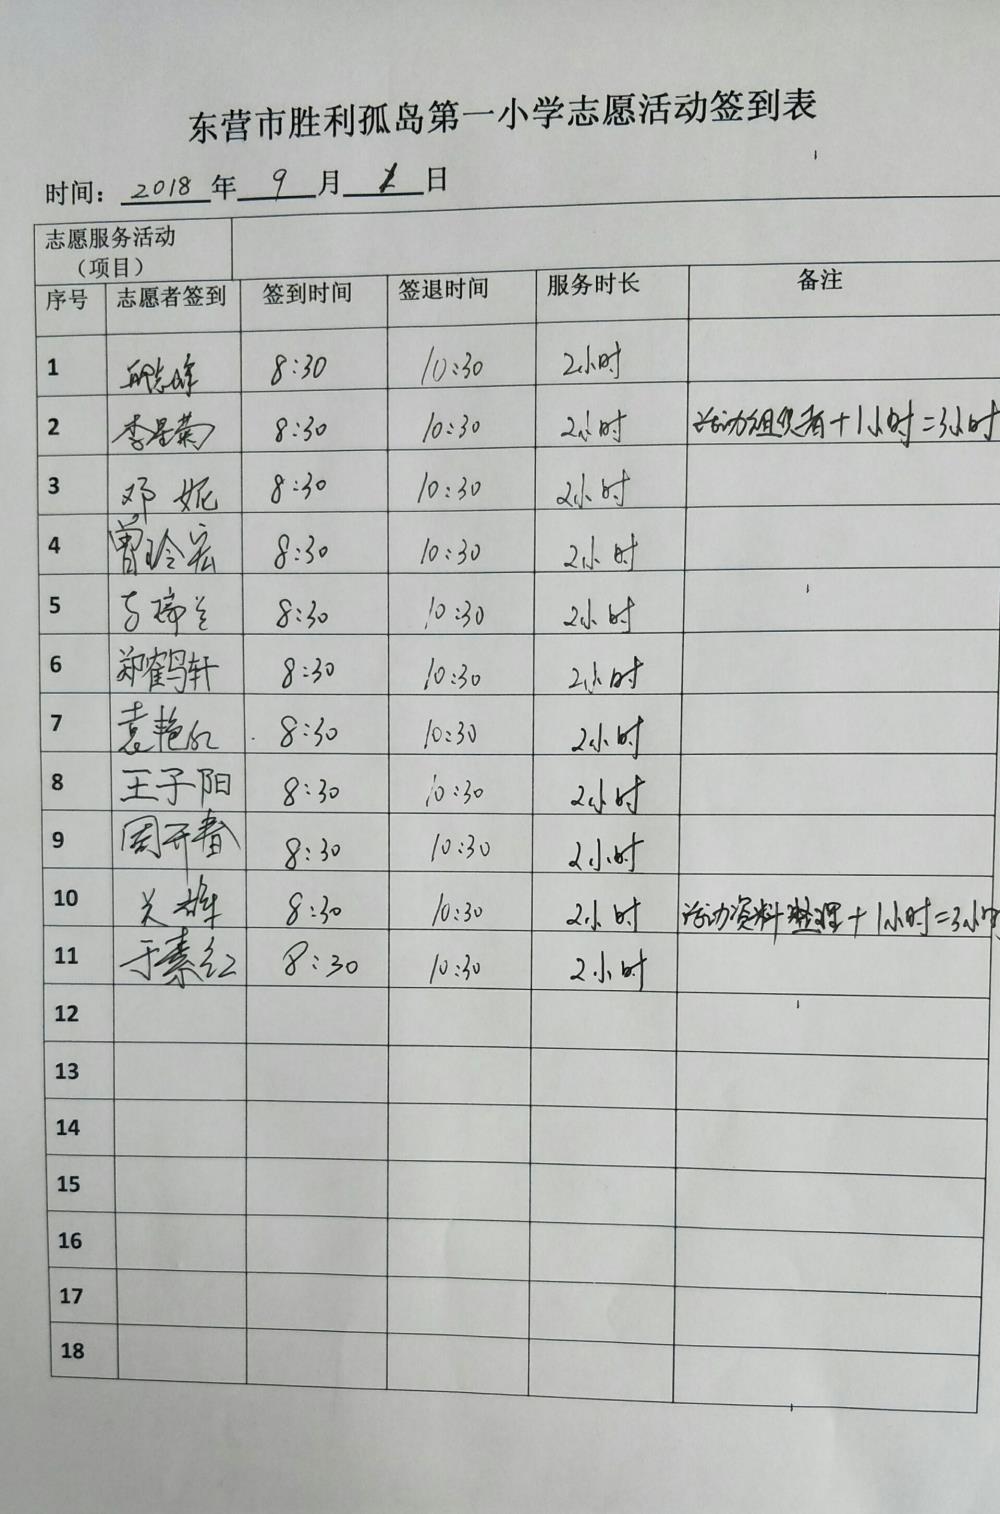 东营市胜利孤岛第一小学志愿活动签到表
时间：2018年9月1日
志愿服务活动
（项目）
序号 志愿者签到 签到时间 签退时间 服务时长 备注
1 8:30 10:30 2小时
2 李星菊 8:30 10:30 2小时 活动组织者+1小时=3小时
3 邓妮 8:30 10:30 2小时
4 曾玲宏 8:30 10:30 2小时
5 8:30 10:30 2小时
6 郑鹤轩 8:30 10:30 2小时
7 袁艳红 8:30 10:30 2小时
8 王子阳 8:30 10:30 2小时
9 周开春 8:30 10:30 2小时
10 关雄 8:30 10:30 2小时 活动资料整理+1小时=3小时
11 于素红 8:30 10:30 2小时
12
13
14
15
16
17
18